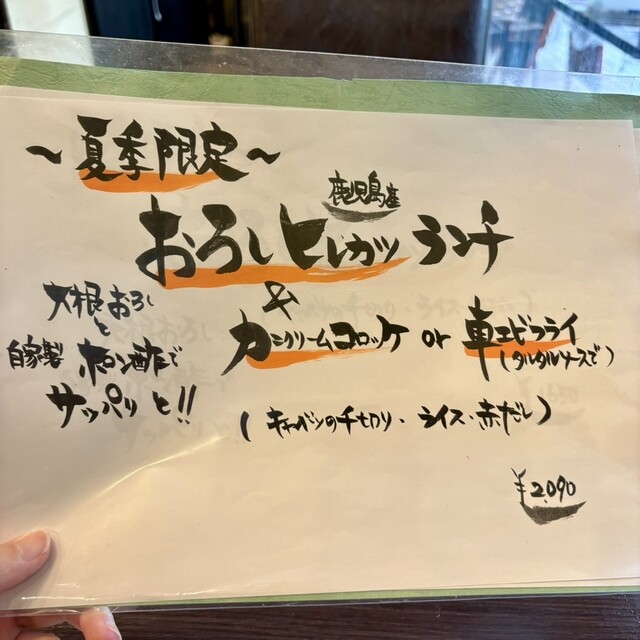 ～夏季限定～
鹿児島産
おろしヒレカツランチ
&
カニクリームコロッケ or 車エビフライ
(タルタルソースで)
大根おろし
と
自家製 ポン酢で
サッパリと!!
(キャベツの千切り・ライス・赤だし)
¥2,090